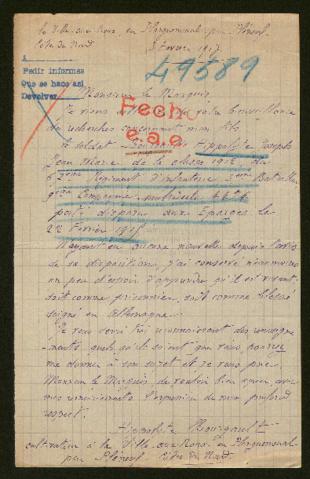 la Ville aux Rois, en Hurguemenal par Pléneuf
Côtes du Nord
5 Février 1917
A
Pedir informes
Que se hace así
Devolver
49589
Monsieur le Marquis
Fecho
e.a.e.
Je viens votre bienveillance
de recherches concernant mon fils
le soldat Hyppolite Joseph
Jean Marie de la classe 1912, du
Régiment d'infanterie Bataillon
Compagnie matricule
porté disparu aux Eparges le
22 Février 1915
N'ayant eu aucune nouvelle depuis l'avis
de sa disparition, j'ai conservé néanmoins
un peu d'espoir d'apprendre qu'il est vivant
soit comme prisonnier, soit comme blessé
soigné en Allemagne.
Je vous serai très reconnaissant des renseigne-
ments, quels qu'ils soient que vous pourrez
me donner à son sujet et je vous prie
Monsieur le Marquis de vouloir bien agréer avec
mes remerciements l'expression de mon profond
respect.
Hippolyte Bourgault
cultivateur à la Ville aux Rois en
par Pléneuf Côtes du Nord.